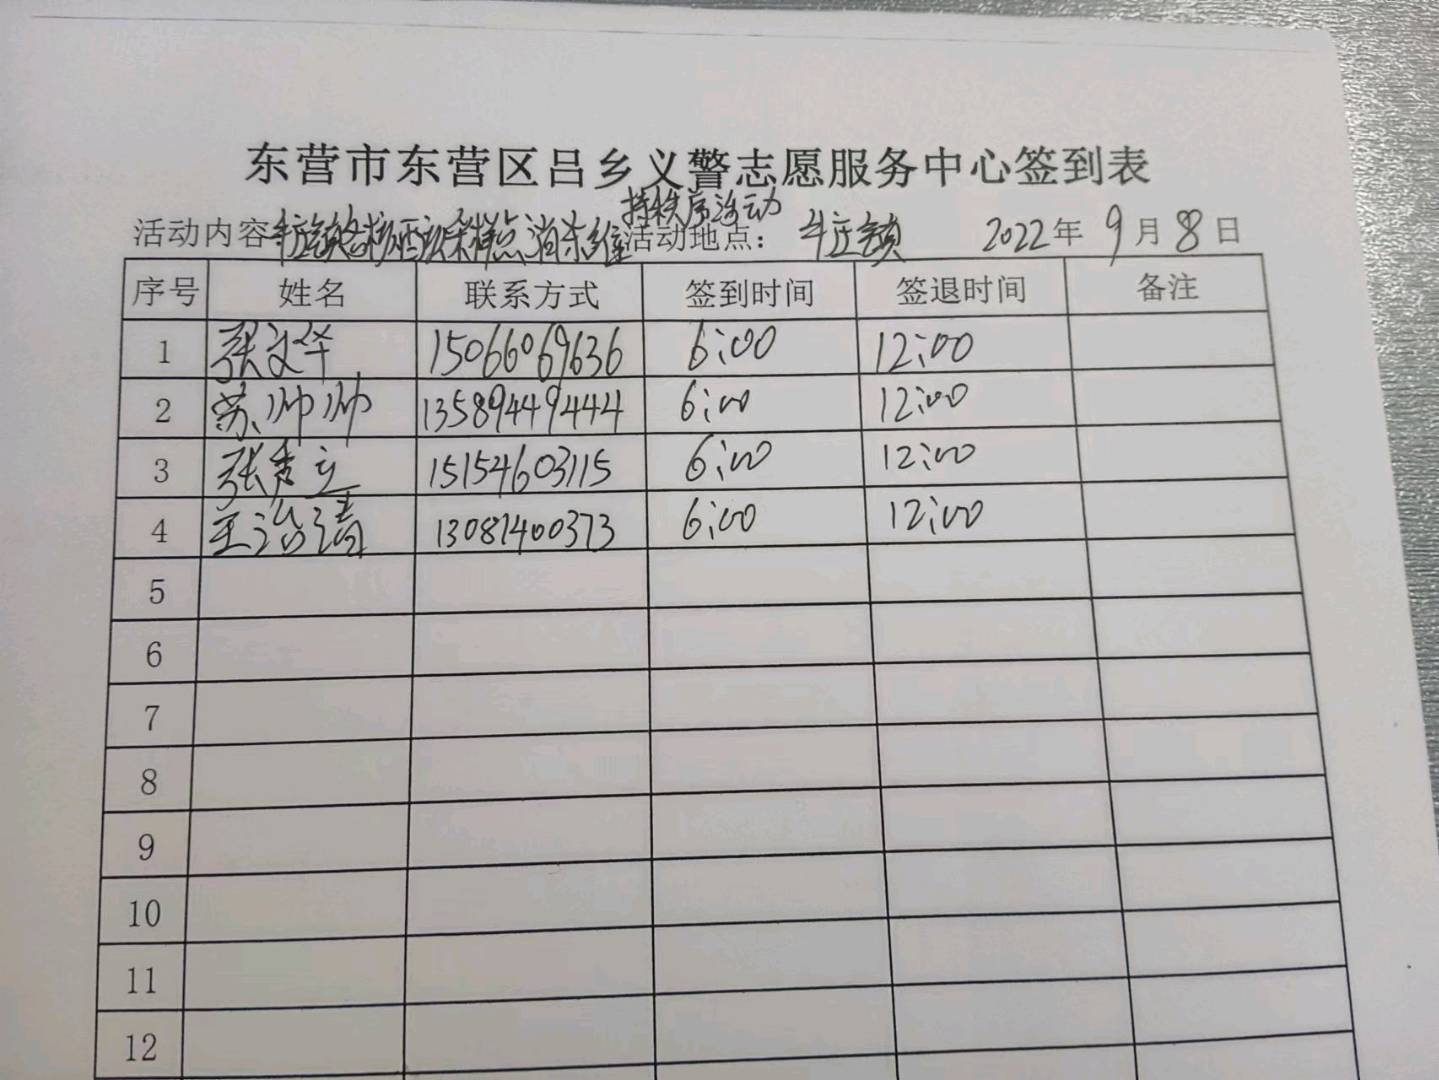 东营市东营区吕乡义警志愿服务中心签到表
持秩序活动
活动内容 牛庄镇各核酸采样点消杀维 活动地点： 牛庄镇 2022年 9月8日
序号 姓名 联系方式 签到时间 签退时间 备注
1 张文华 15066069636 6:00 12:00
2 苏帅帅 13589449444 6:00 12:00
3 张 立 15154603115 6:00 12:00
4 王治清 13081400373 6:00 12:00
5
6
7
8
9
10
11
12